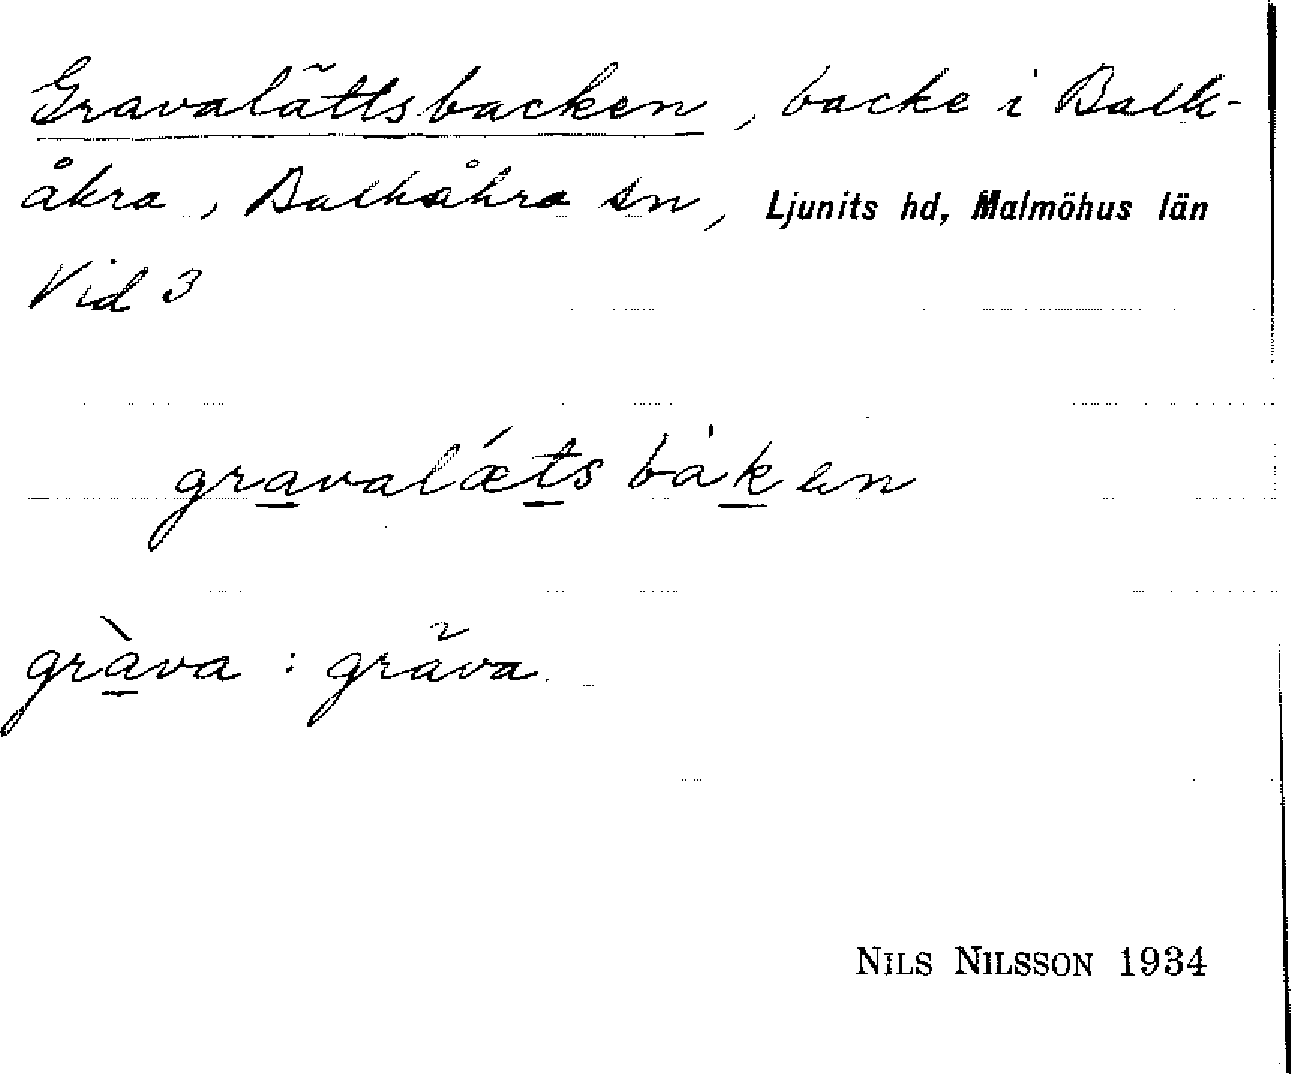 Gravalättsbacken, backe i Balk-
åkra, Balkåkra sn, Ljunits hd, Malmöhus län
Vid 3
gravalǽts bàken
gràva : grãva
NILS NILSSON 1934